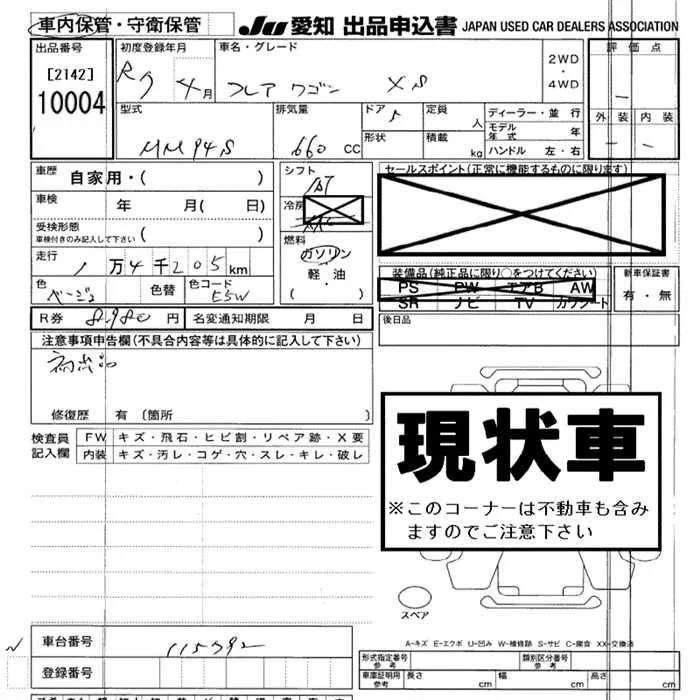 車内保管・守衛保管 JU 愛知 出品申込書 JAPAN USED CAR DEALERS ASSOCIATION
出品番号 初度登録年月 車名・グレード 2WD・4WD 評価点
[2142] 10004 R 7 4月 フレア ワゴン XS
型式 排気量 ドア 5 定員 人 ディーラー・並行 外装 内装
モデル年式 年
MM94S 660 CC 形状 積載 kg ハンドル 左・右
車歴 自家用・( ) シフト AT セールスポイント(正常に機能するものに限ります)
車検 年 月( 日) 冷房
受検形態 車検付きのみ記入して下さい ( ) 燃料 ガソリン
走行 1万4千205km 軽油 装備品(純正品に限り○をつけてください) 新車保証書
PS PW エアB AW 有・無
色 ベージュ 色替 色コード E5W ・( ) SR ナビ TV カワシート
R券 8,980円 名変通知期限 月 日 後日品
注意事項申告欄(不具合内容等は具体的に記入して下さい)
初出品
修復歴 有〔箇所 〕
検査員記入欄 FW キズ・飛石・ヒビ割・リペア跡・X要
内装 キズ・汚レ・コゲ・穴・スレ・キレ・破レ
現状車
※このコーナーは不動車も含み
ますのでご注意下さい
スペア
A-キズ E-エクボ U-凹み W-補修跡 S-サビ C-腐食 XX-交換済
車台番号 115792
登録番号
形式指定番号 参考 類別区分番号 参考
車庫証明用 参考 長さ cm 幅 cm 高さ cm